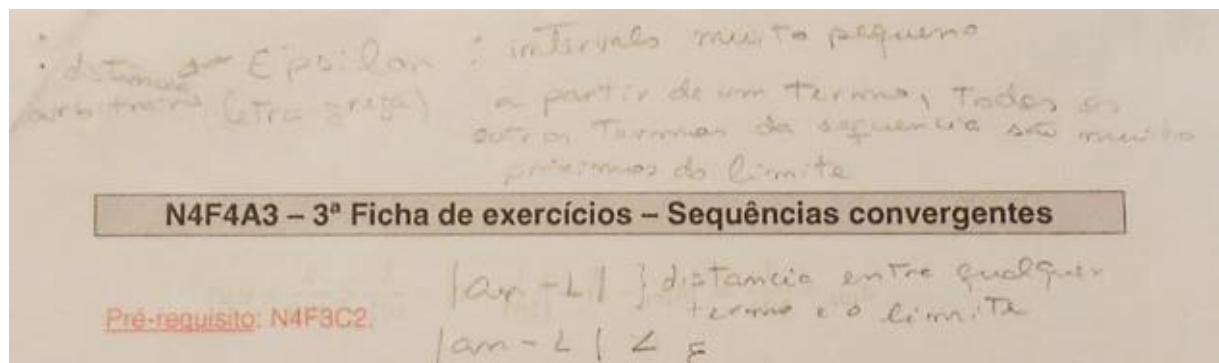 : distancia Epsilon : intervalo muito pequeno
arbitraria (letra grega) a partir de um termo, Todos os
outros Termos da sequencia são muito
próximos do limite
N4F4A3 – 3ª Ficha de exercícios – Sequências convergentes
|an - L| } distancia entre qualquer
termo e o limite
Pré-requisito: N4F3C2.
|an - L| < ε